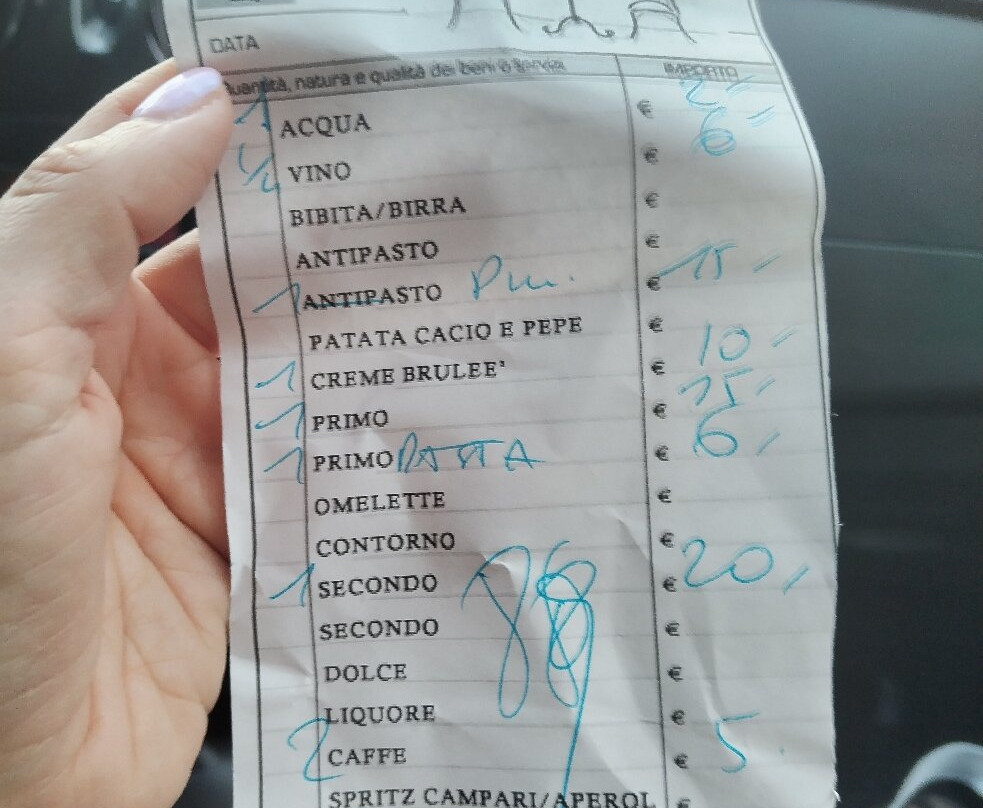 DATA
Quantità, natura e qualità dei beni o servizi IMPORTO
1 ACQUA € 2
1/2 VINO € 6
BIBITA/BIRRA €
ANTIPASTO €
1 ANTIPASTO € 15
PATATA CACIO E PEPE €
1 CREME BRULEE' € 10
1 PRIMO € 15
1 PRIMO PASTA € 6
OMELETTE €
CONTORNO €
1 SECONDO € 20
SECONDO €
DOLCE €
LIQUORE €
2 CAFFE € 5
SPRITZ CAMPARI/APEROL €